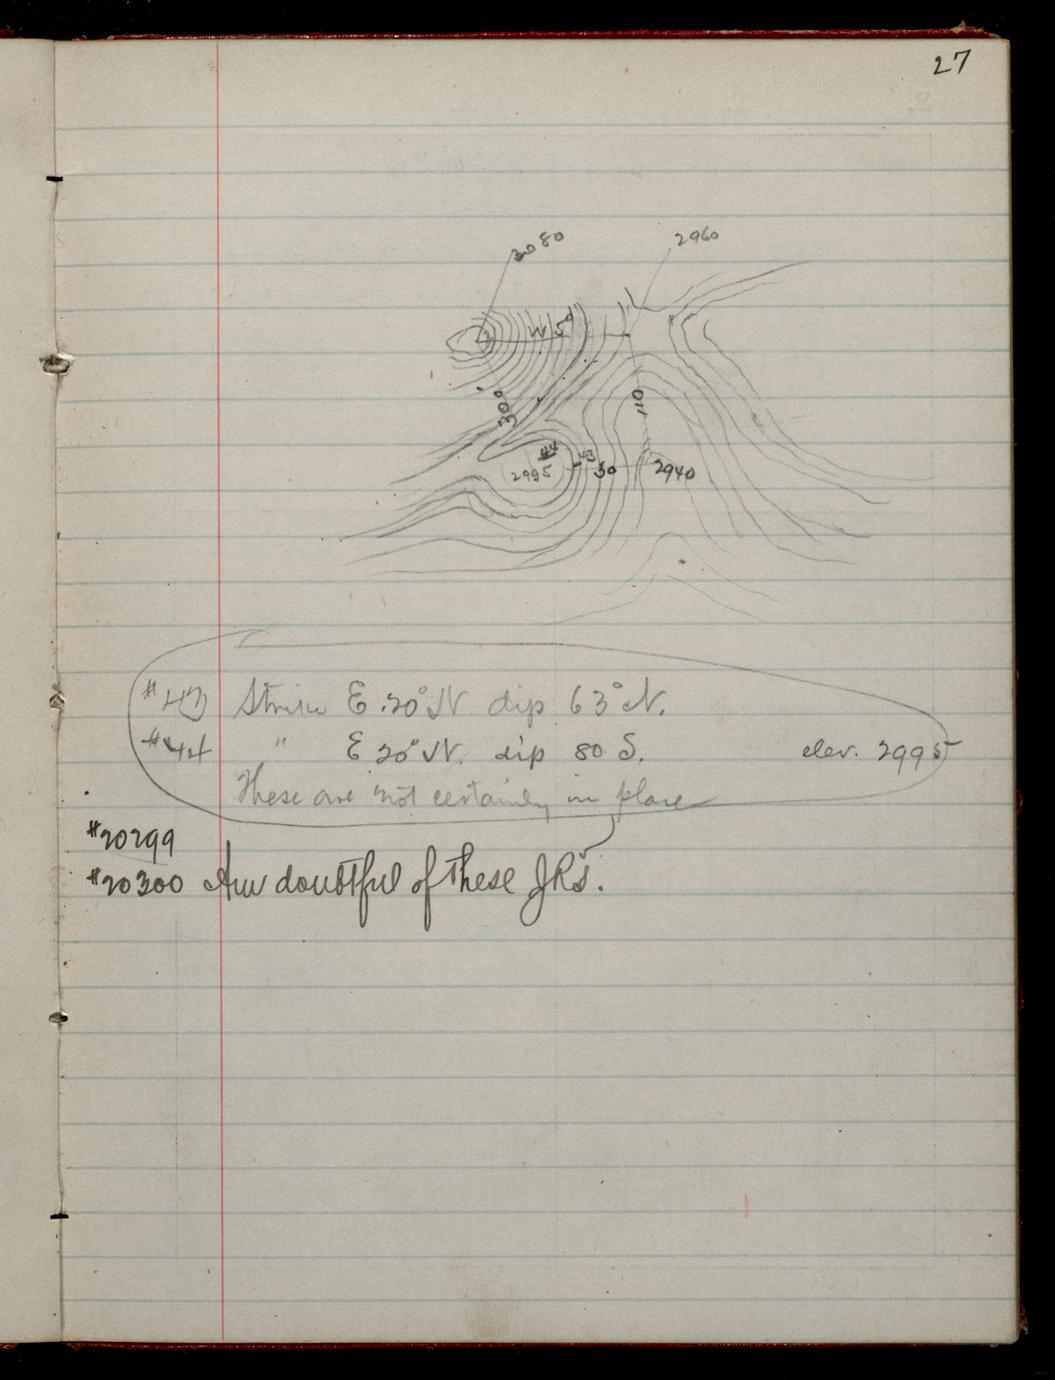 27
3080
2960
W 5°
300
110
44
43
2995
50
2940
#43 Strike E. 20° N. dip 63° N.
#44 " E 20° N. dip 80 S. elev. 2995
These are not certainly in place
#20299
#20300 Am doubtful of these JRs.